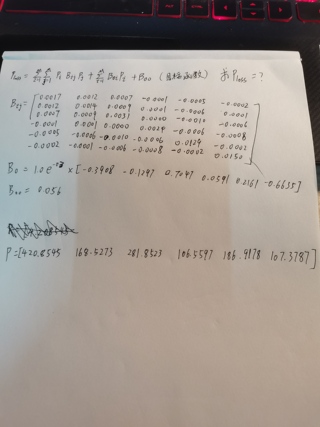 Ploss = Σ Σ Pi Bij Pj + Σ B0i Pi + B00 (目标函数) 求 Ploss = ?
Bij = [0.0017 0.0012 0.0007 -0.0001 -0.0005 -0.0002
0.0012 0.0014 0.0009 0.0001 -0.0006 -0.0001
0.0007 0.0009 0.0031 0.0000 -0.0010 -0.0006
-0.0001 0.0001 0.0000 0.0024 -0.0006 -0.0008
-0.0005 -0.0006 -0.0010 -0.0006 0.0129 -0.0002
-0.0002 -0.0001 -0.0006 -0.0008 -0.0002 0.0150]
B0 = 1.0e × [-0.3908 -0.1297 0.7047 0.0591 0.2161 -0.6635]
B00 = 0.056
P=[420.8595 168.5273 281.8523 106.5597 106.9178 107.3787]